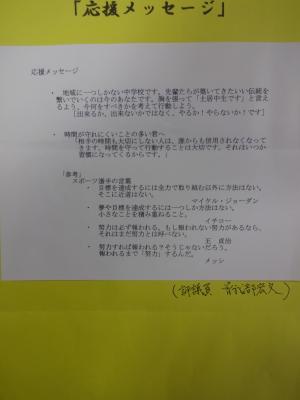 「応援メッセージ」
応援メッセージ
・ 地域に一つしかない中学校です。先輩たちが築いてきたいい伝統を
繋いでいくのは今のあなたです。胸を張って「土居中生です」と言え
るよう、今何をすべきかを考えて行動しよう。
［出来るか、出来ないかではなく、やるか！やらないか！です］
・ 時間が守れにくいことの多い君へ
「相手の時間も大切にしない人は、誰からも信用されなくなって
きます。時間を守って行動することは大切です。それはいつか
習慣になってくるからです。」
「参考」
スポーツ選手の言葉
・ 目標を達成するには全力で取り組む以外に方法はない。
そこに近道はない。
マイケル・ジョーダン
・ 夢や目標を達成するには一つしか方法はない。
小さなことを積み重ねること。
イチロー
・ 努力は必ず報われる。もし報われない努力があるなら、
それはまだ努力とは呼べない。
王 貞治
・ 努力すれば報われる？そうじゃないだろう。
報われるまで「努力」するんだ。
メッシ
(評議員